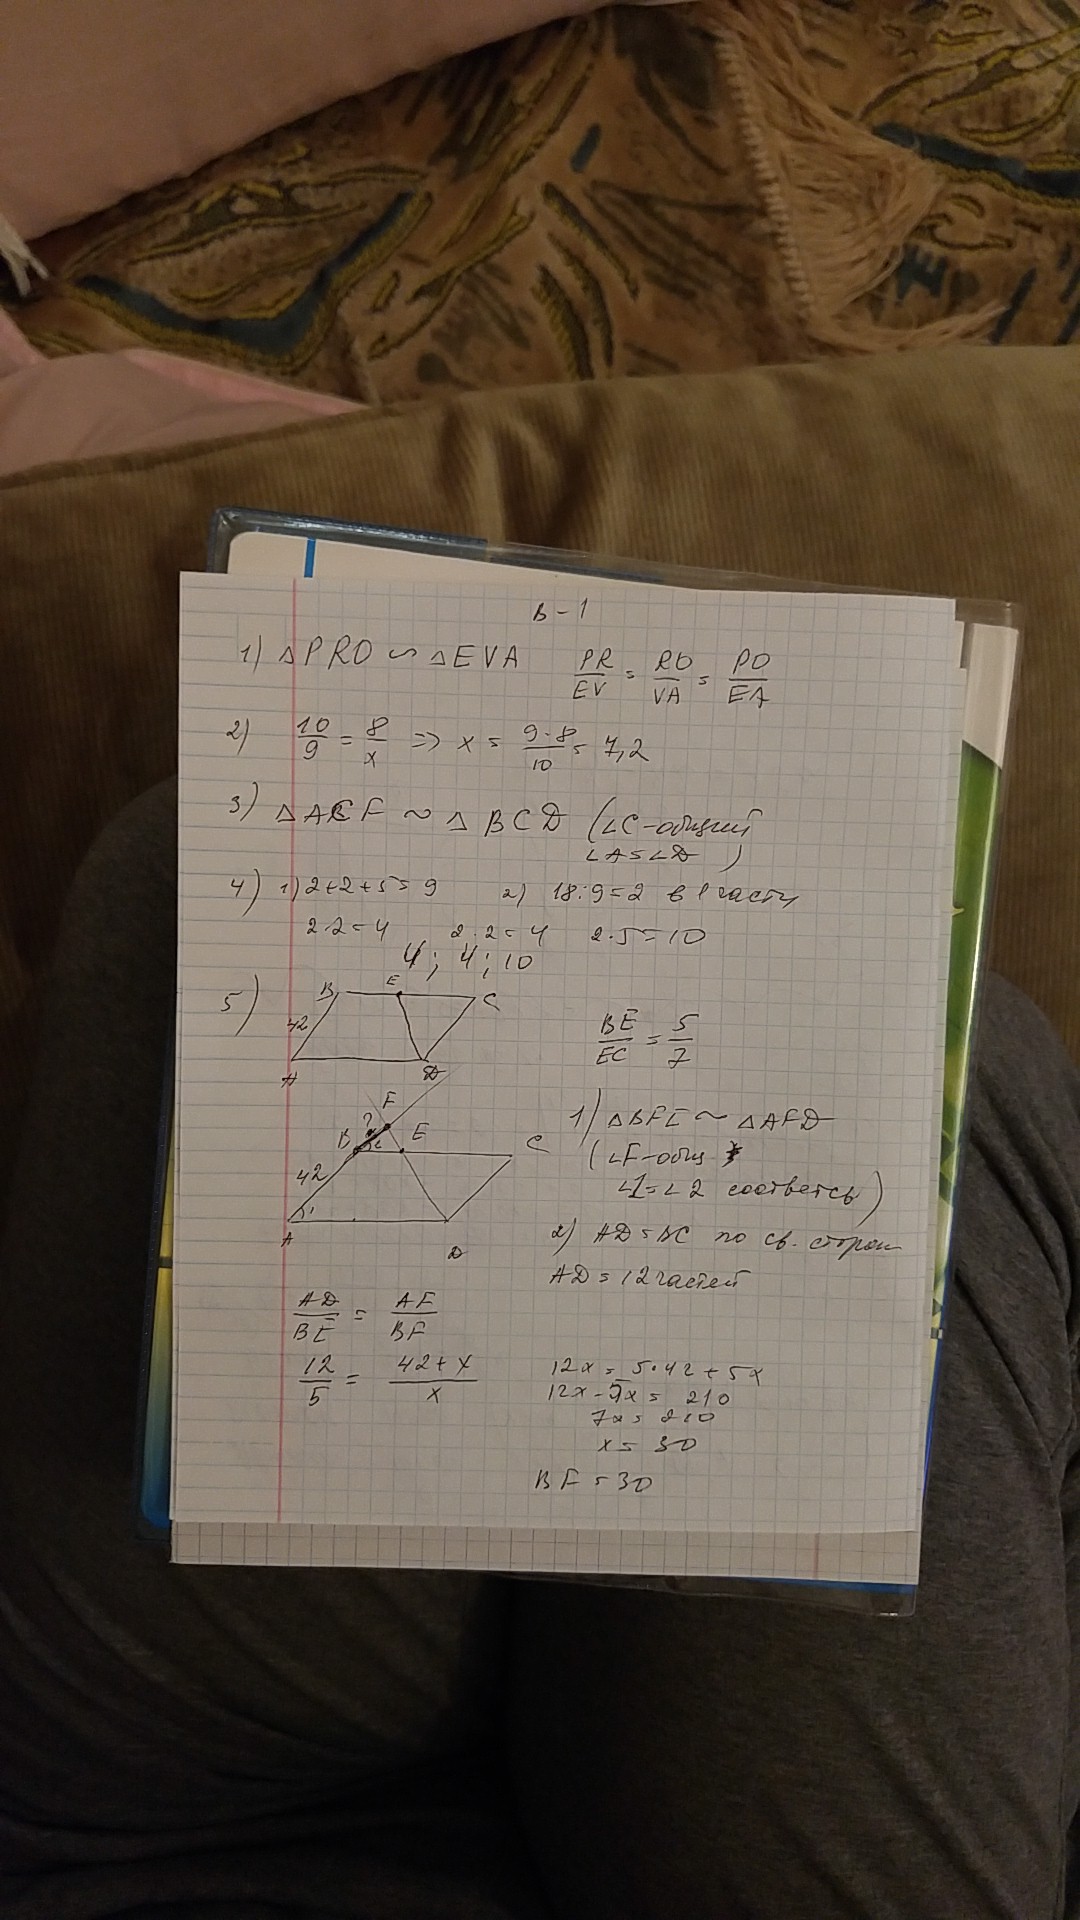 В-1
1) △PRO ∽ △EVA PR/EV = RO/VA = PO/EA
2) 10/9 = 8/x => x = 9·8/10 = 7,2
3) △ACF ~ △BCD (∠C-общий
∠A=∠D)
4) 1) 2+2+5=9 2) 18:9=2 в 1 части
2·2=4 2·2=4 2·5=10
4; 4; 10
5) B E C
42
A D
BE/EC = 5/7
F
? 
B 2 E C
42
1
A D
1) △BFE ~ △AFD
(∠F-общ
∠1=∠2 соответсв)
2) AD=BC по св. сторон
AD = 12 частей
AD/BE = AF/BF
12/5 = 42+x/x
12x = 5·42+5x
12x-5x = 210
7x = 210
x = 30
BF = 30